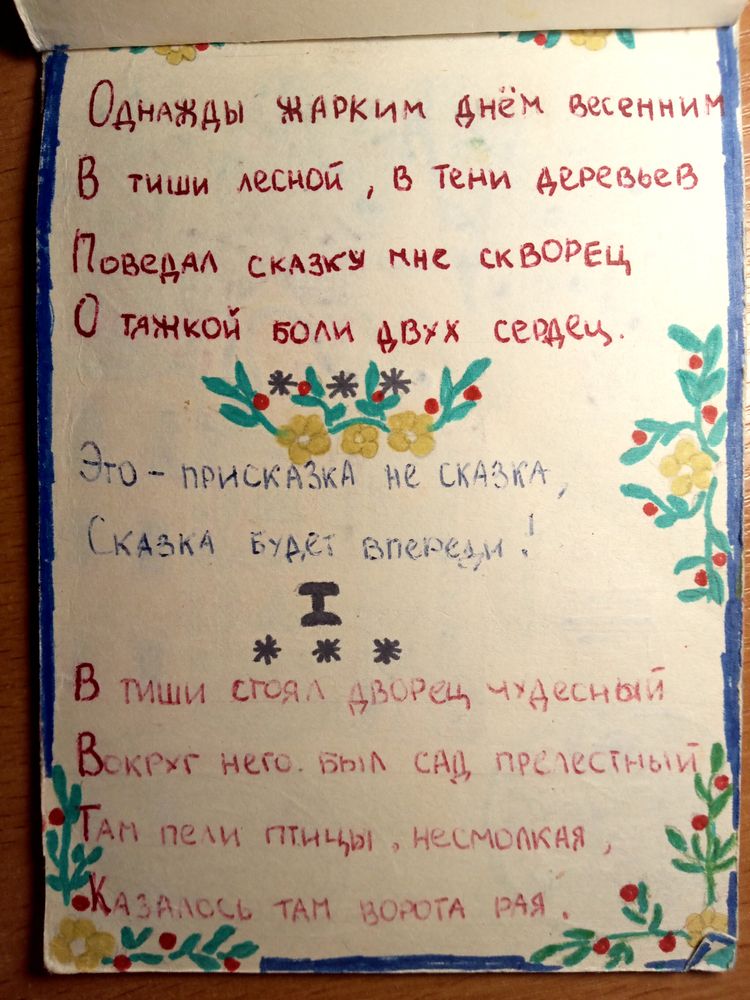 Однажды жарким днём весенним
В тиши лесной, в тени деревьев
Поведал сказку мне скворец
О тажкой боли двух сердец.
* * *
Это - присказка не сказка,
Сказка будет впереди!
I
* * *
В тиши стоял дворец чудесный
Вокруг него был сад прелестный
Там пели птицы, несмолкая,
Казалось там ворота рая.